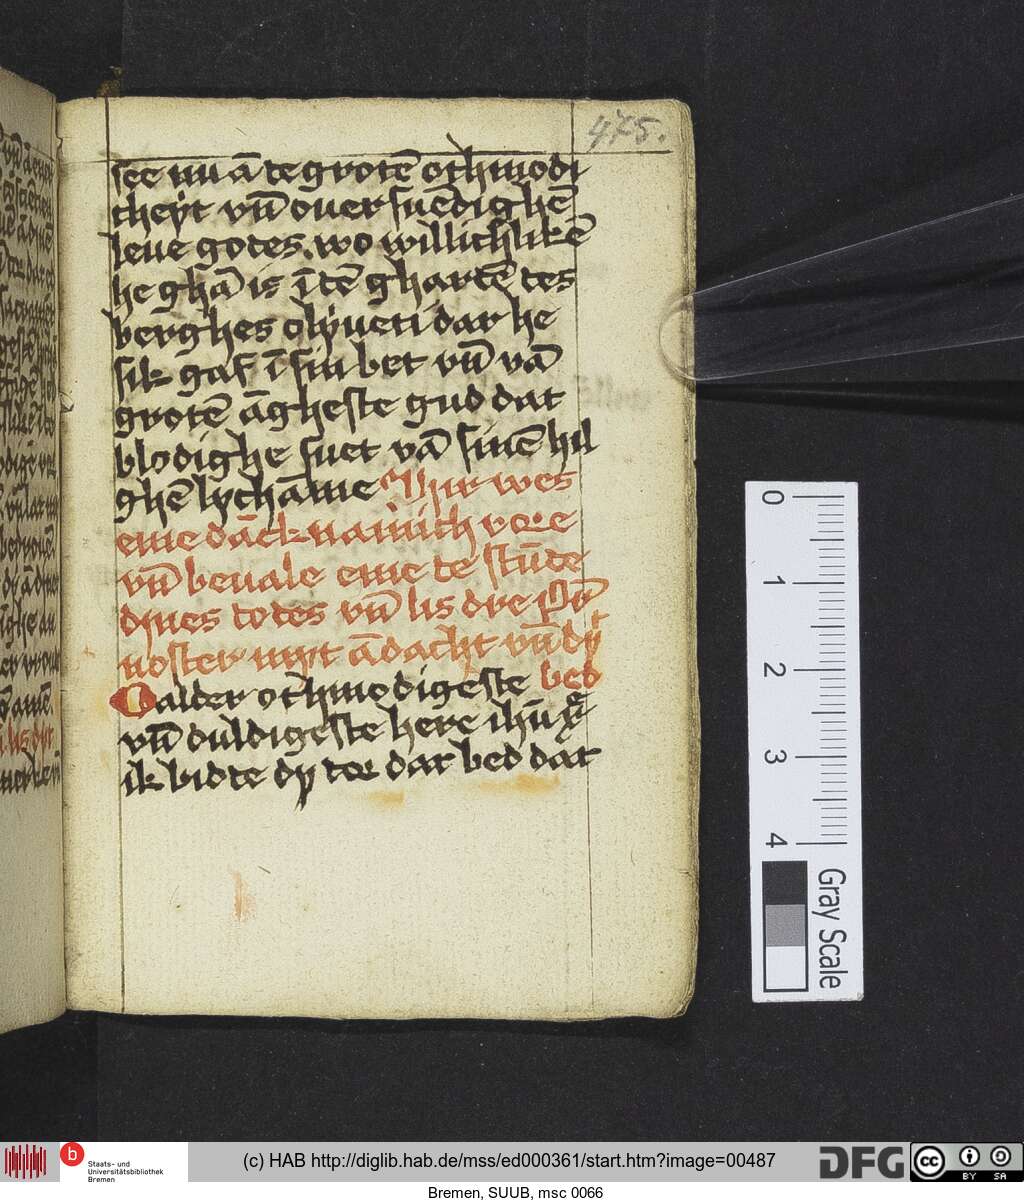 475.
see nu ā te grotē othmodi
cheẏt vn̄ ouer fuēdighē
leue gotes. wo willichlikē
he ghā is ī tē ghartē tes
berghes olẏueti dar he
sik gaf ī sin bet vn̄ vā
grotē āgheste gud dat
blodighe suet vā sinē hil
ghē lychāme Hir wes
eme dācknamich vore
vn̄ beuale eme te stūde
dynes todes vn̄ lis dre Pr̄
noster myt ādacht vn̄ dyt
bed
O alder othmodigeste
vn̄ duldigeste here ihū xp̄e
ik bidte dy tor dat bed dat
0
1
2
3
4
Gray Scale
b Staats- und
Universitätsbibliothek
Bremen
(c) HAB http://diglib.hab.de/mss/ed000361/start.htm?image=00487
DFG
cc BY SA
Bremen, SUUB, msc 0066